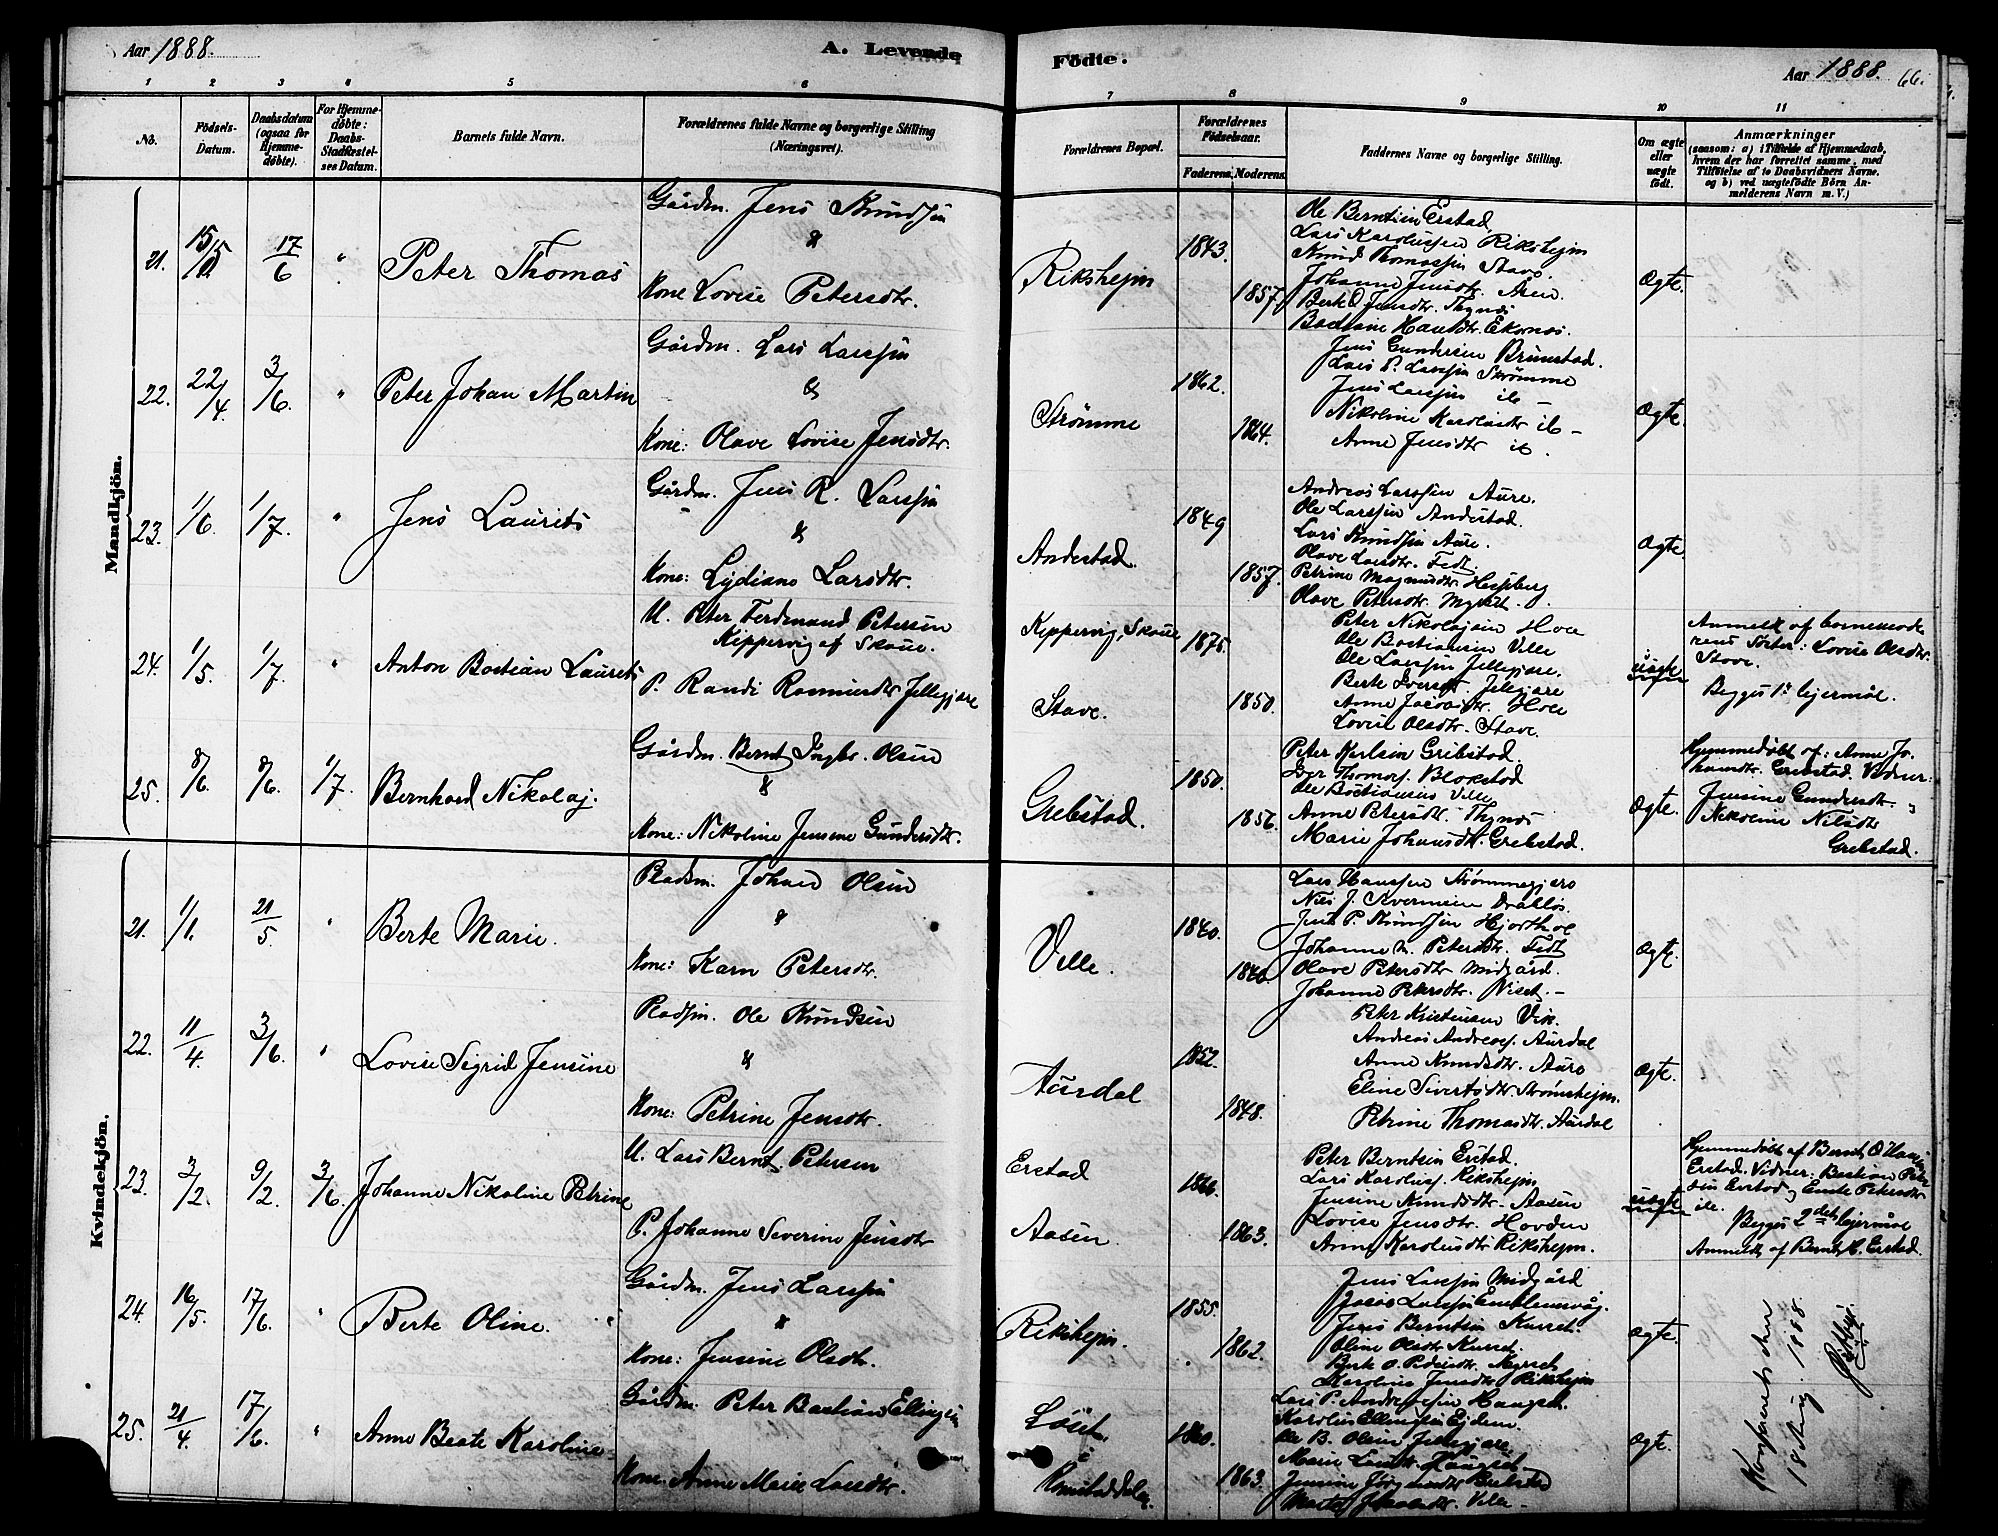 Aar 1888.
A. Levende Fødte.
Aar 1888. 66.
1 2 3 4 5 6 7 8 9 10 11
No.
Födsels-
Datum.
Daabsdatum
(ogsaa for
Hjemme-
døbte).
For Hjemme-
døbte:
Daabs-
Stadfæstel-
ses Datum.
Barnets fulde Navn.
Forældrenes fulde Navne og borgerlige Stilling
(Næringsvei).
Forældrenes Bopæl.
Forældrenes
Fødselsaar.
Faderens. Moderens.
Faddernes Navne og borgerlige Stilling.
Om ægte
eller
uægte
født.
Anmærkninger
(saasom: a) i Tilfælde af Hjemmedaab,
hvem der har forrettet samme, med
Tilføielse af to Daabsvidners Navne.
og b) ved uægtefødte Börn An-
melderens Navn m.V.)
Mandkjön.
21. 15/5 17/6 " Peter Thomas
Gårdm. Jens Knudsen
&
Kone Lovise Petersdtr.
Rikshejm
1843.
1857.
Ole Berntsen Erstad,
Lars Karolussen Rikshejm
Knud Thomassen Stave.
Johanne Jensdtr. Aasen.
Berte Jensdtr. Thynes
Bastiane Hansdtr. Ekornes.
Ægte.
22. 22/4 3/6. " Peter Johan Martin
Gårdm. Lars Larssen
&
Kone: Olave Lovise Jensdtr.
Strømme
1862.
1864.
Jens Gundersen Brunstad.
Lars P. Larssen Strømme
Jens Larssen ib –
Nikoline Karolusdtr ib –
Anne Jensdtr ib.
Ægte.
23. 1/6. 1/7. " Jens Laurits
Gårdm. Jens R. Larssen
&
Kone: Lydiane Larsdtr.
Andestad.
1849
1857.
Andreas Larssen Aure.
Ole Larssen Andestad.
Lars Knudsen Aure.
Olave Larsdtr. Fedt.
Petrine Magnusdtr. Hessberg
Olave Petersdtr. Myrset.
Ægte.
24. 1/5. 1/7. " Anton Bastian Laurits
U. Peter Ferdinand Petersen
Keppervig af Skoue.
P. Randi Rasmusdtr Jellegjære
Keppervig, Skoue
Stave.
1875.
1850.
Peter Nikolajsen Hole
Ole Bastiansen Velle
Ole Larssen Jellegjære.
Berte Iversdtr. Jelegjære
Anne Jacobsdtr. Hole
Lovise Olsdtr. Stave.
uægte
Anmeldt af barnemode-
rens Søster: Lovise Olsdtr.
Stave.
Begges 1ste lejermål.
25. 8/6. 8/6. 1/7. Bernhard Nikolaj.
Gårdm. Bernt Ingbr. Olsen
&
Kone: Nikoline Jensine Gundersdtr.
Grebstad.
1850.
1856.
Peter Karlsen Grebstad.
Iver Thomass. Blakstad
Ole Bastiansen Velle
Anne Petersdtr. Thynes
Marie Johansdtr. Grebstad.
Ægte.
Hjemmedøbt af: Anne Jo-
hansdtr. Grebstad. Vidner:
Jensine Gundersdtr. og
Nikoline Nilsdtr
Grebstad.
Kvindekjön.
21. 1/1. 21/5. " Berte Marie.
Pladsm. Johan Olsen
&
Kone: Karn Petersdtr.
Velle.
1840.
1840.
Lars Hanssen Strømmegjære
Nils J. Sivertsen Drabløs.
Jens P. Knudsen Hjorthol
Johanne N. Petersdtr. Fedt
Olave Petersdtr Midgård.
Johanne Petersdtr. Niset.–
Ægte.
22. 11/4 3/6. " Lovise Sigrid Jensine
Pladsm. Ole Knudsen
&
Kone: Petrine Jensdtr.
Aurdal
1852.
1848.
Peter Kristensen Vik.
Andreas Andreass. Aurdal
Anne Knudsdtr. Aure
Eline Sivertsdtr. Strømshejm.
Petrine Thomasdtr. Aurdal
Ægte.
23. 3/2. 9/2. 3/6. Johanne Nikoline Petrine
U. Lars Bernt Petersen
P. Johanne Severine Jensdtr
Erstad
Aasen
1866.
1863.
Peter Berntsen Erstad.
Lars Karoluss. Rikshejm
Jensine Knudsdtr. Aasen
Lovise Jensdtr. Hovden
Anne Karolusdtr Rikshejm.
uægte
Hjemmedøbt af Bernt O. Hansen
Erstad. Vidner: Bastian Peter-
sen Erstad og Emte Petersdtr
ib.
Begges 2det lejermål
Anmeldt af Bernt H. Erstad.
24. 16/5. 17/6. " Berte Oline.
Gårdm. Jens Larssen
&
Kone: Jensine Olsdtr.
Rikshejm.
1855.
1862.
Jens Larssen Midgård
Jacob Larssen Emblemsvåg.
Jens Berntsen Kurset.
Oline Olsdtr. Kurset.
Berte O. Pedersdtr. Myrset
Karoline Jensdtr. Rikshejm
Ægte.
25. 21/4. 17/6. " Anne Beate Karoline
Gårdm. Peter Bastian Ellingsen
Kone: Anne Marie Larsdtr.
Løset
i
1860.
1863.
Lars P. Andreassen Haugset.
Karolus Ellingsen Ejdem.
Ole B. Olsen Jellegjære
Marie Larsdtr. Haugset
Jensine Jørgensdtr Erstad
Marte Jacobsdtr. Velle –
Ægte.
Konfereret den
18 Aug. 1888.